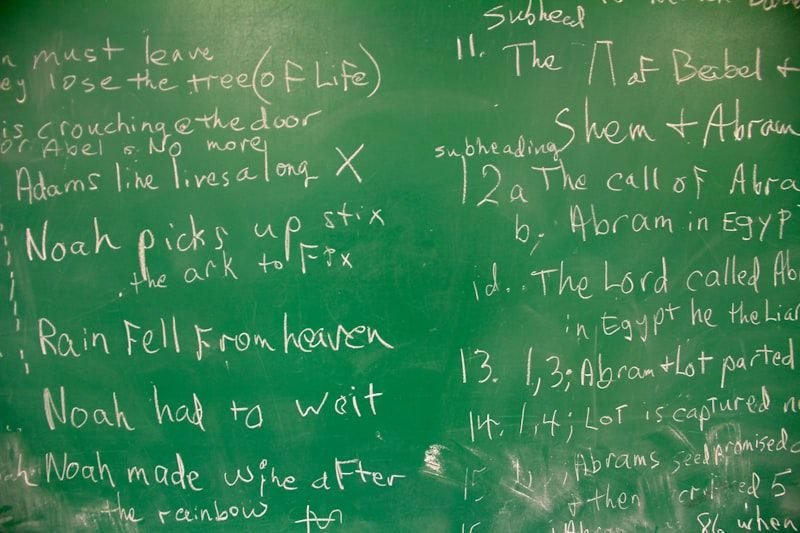 n must leave
ey lose the tree (of Life)
is crouching @ the door
or Abel & No more
Adams line lives along X
Noah picks up stix
the ark to Fix
Rain Fell From heaven
Noah had to wait
Noah made wine after
the rainbow
Subhead
11. The Π of Babel +
Shem + Abram
subheading
12a The call of Abra
b; Abram in Egyp
id.. The Lord called Ab
in Egypt he the Liar
13. 1,3; Abram + Lot parted
14. 1,4; Lot is captured
15 Abrams seed promised
+ then 5
86 when